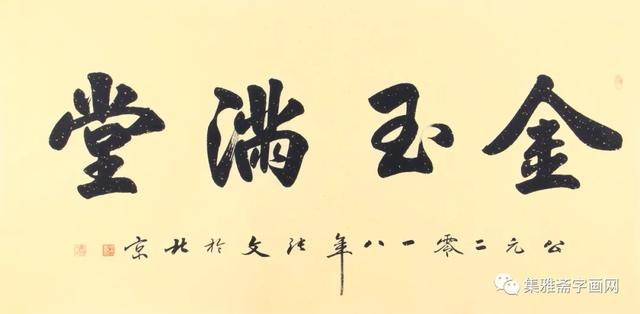 金玉满堂
公元二零一八年张文於北京
集雅斋字画网